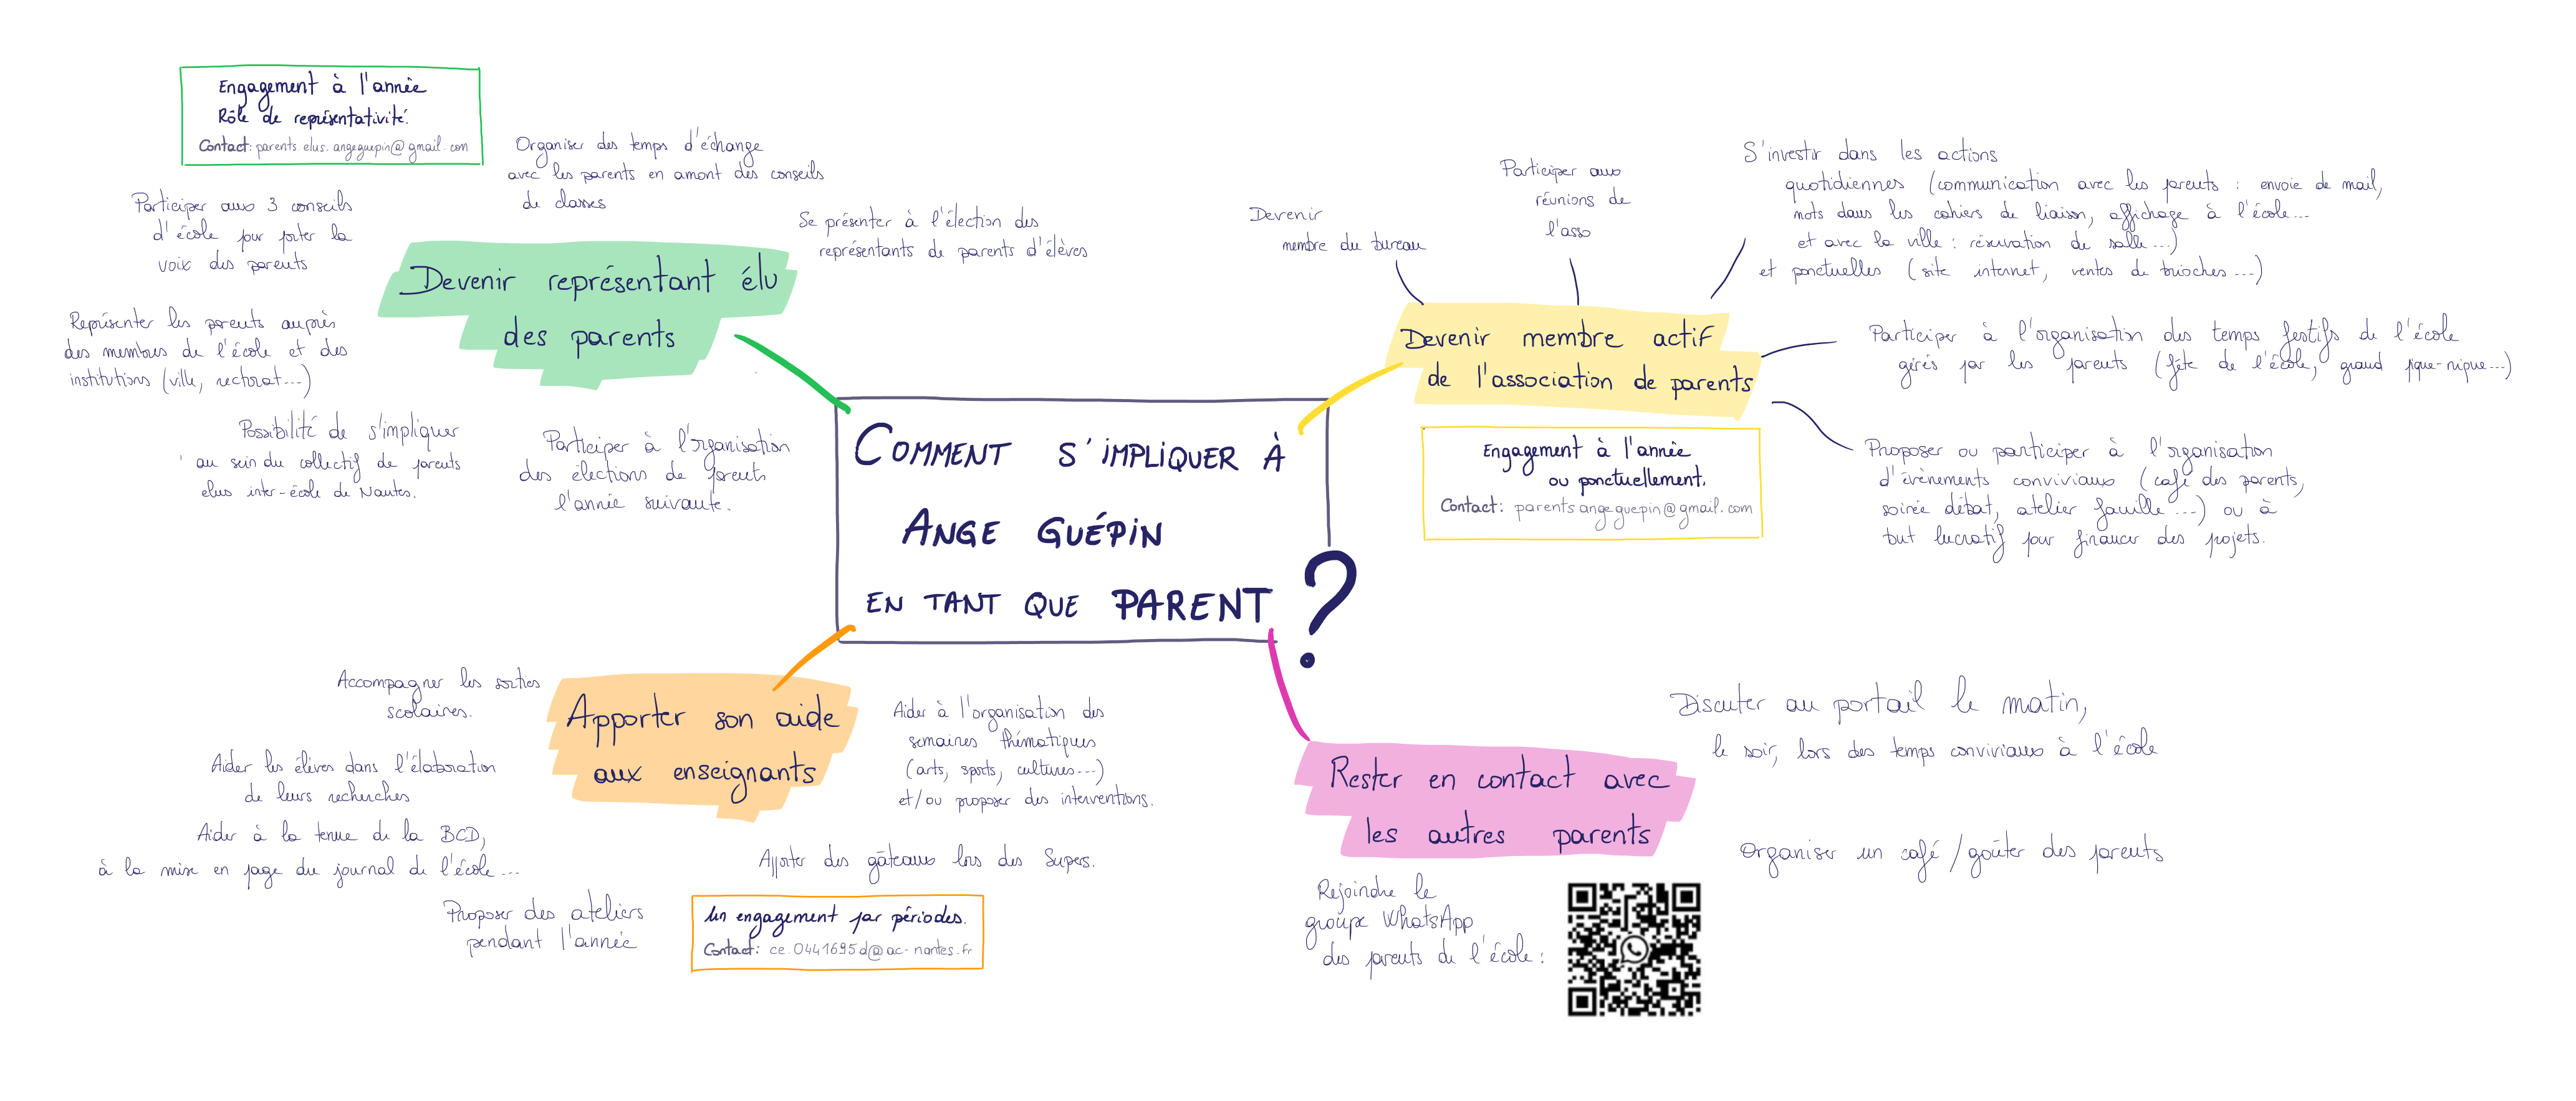 Engagement à l'année
Rôle de représentativité.
Contact: parents.elus.angeguepin@gmail.com
Organiser des temps d'échange
avec les parents en amont des conseils
de classes
Participer aux 3 conseils
d'école pour porter la
voix des parents
Se présenter à l'élection des
représentants de parents d'élèves
Devenir représentant élu
des parents
Représenter les parents auprès
des membres de l'école et des
institutions (ville, rectorat...)
Possibilité de s'impliquer
au sein du collectif de parents
elus inter-école de Nantes.
Participer à l'organisation
des élections de parents
l'année suivante.
COMMENT S'IMPLIQUER À
ANGE GUÉPIN
EN TANT QUE PARENT ?
Devenir
membre du bureau
Participer aux
réunions de
l'asso
S'investir dans les actions
quotidiennes (communication avec les parents : envoie de mail,
mots dans les cahiers de liaison, affichage à l'école...
et avec la ville : réservation de salle...)
et ponctuelles (site internet, ventes de brioches...)
Devenir membre actif
de l'association de parents
Participer à l'organisation des temps festifs de l'école
gérés par les parents (fête de l'école, grand pique-nique...)
Engagement à l'année
ou ponctuellement.
Contact: parentsangeguepin@gmail.com
Proposer ou participer à l'organisation
d'évènements conviviaux (café des parents,
soirée débat, atelier famille...) ou à
but lucratif pour financer des projets.
Accompagner les sorties
scolaires.
Apporter son aide
aux enseignants
Aider à l'organisation des
semaines thématiques
(arts, sports, cultures...)
et/ou proposer des interventions.
Aider les élèves dans l'élaboration
de leurs recherches
Aider à la tenue de la BCD,
à la mise en page du journal de l'école...
Apporter des gâteaux lors des Supers.
Proposer des ateliers
pendant l'année
Un engagement par périodes.
Contact: ce.0441695d@ac-nantes.fr
Rester en contact avec
les autres parents
Discuter au portail le matin,
le soir, lors des temps conviviaux à l'école
Organiser un café/goûter des parents
Rejoindre le
groupe WhatsApp
des parents de l'école :